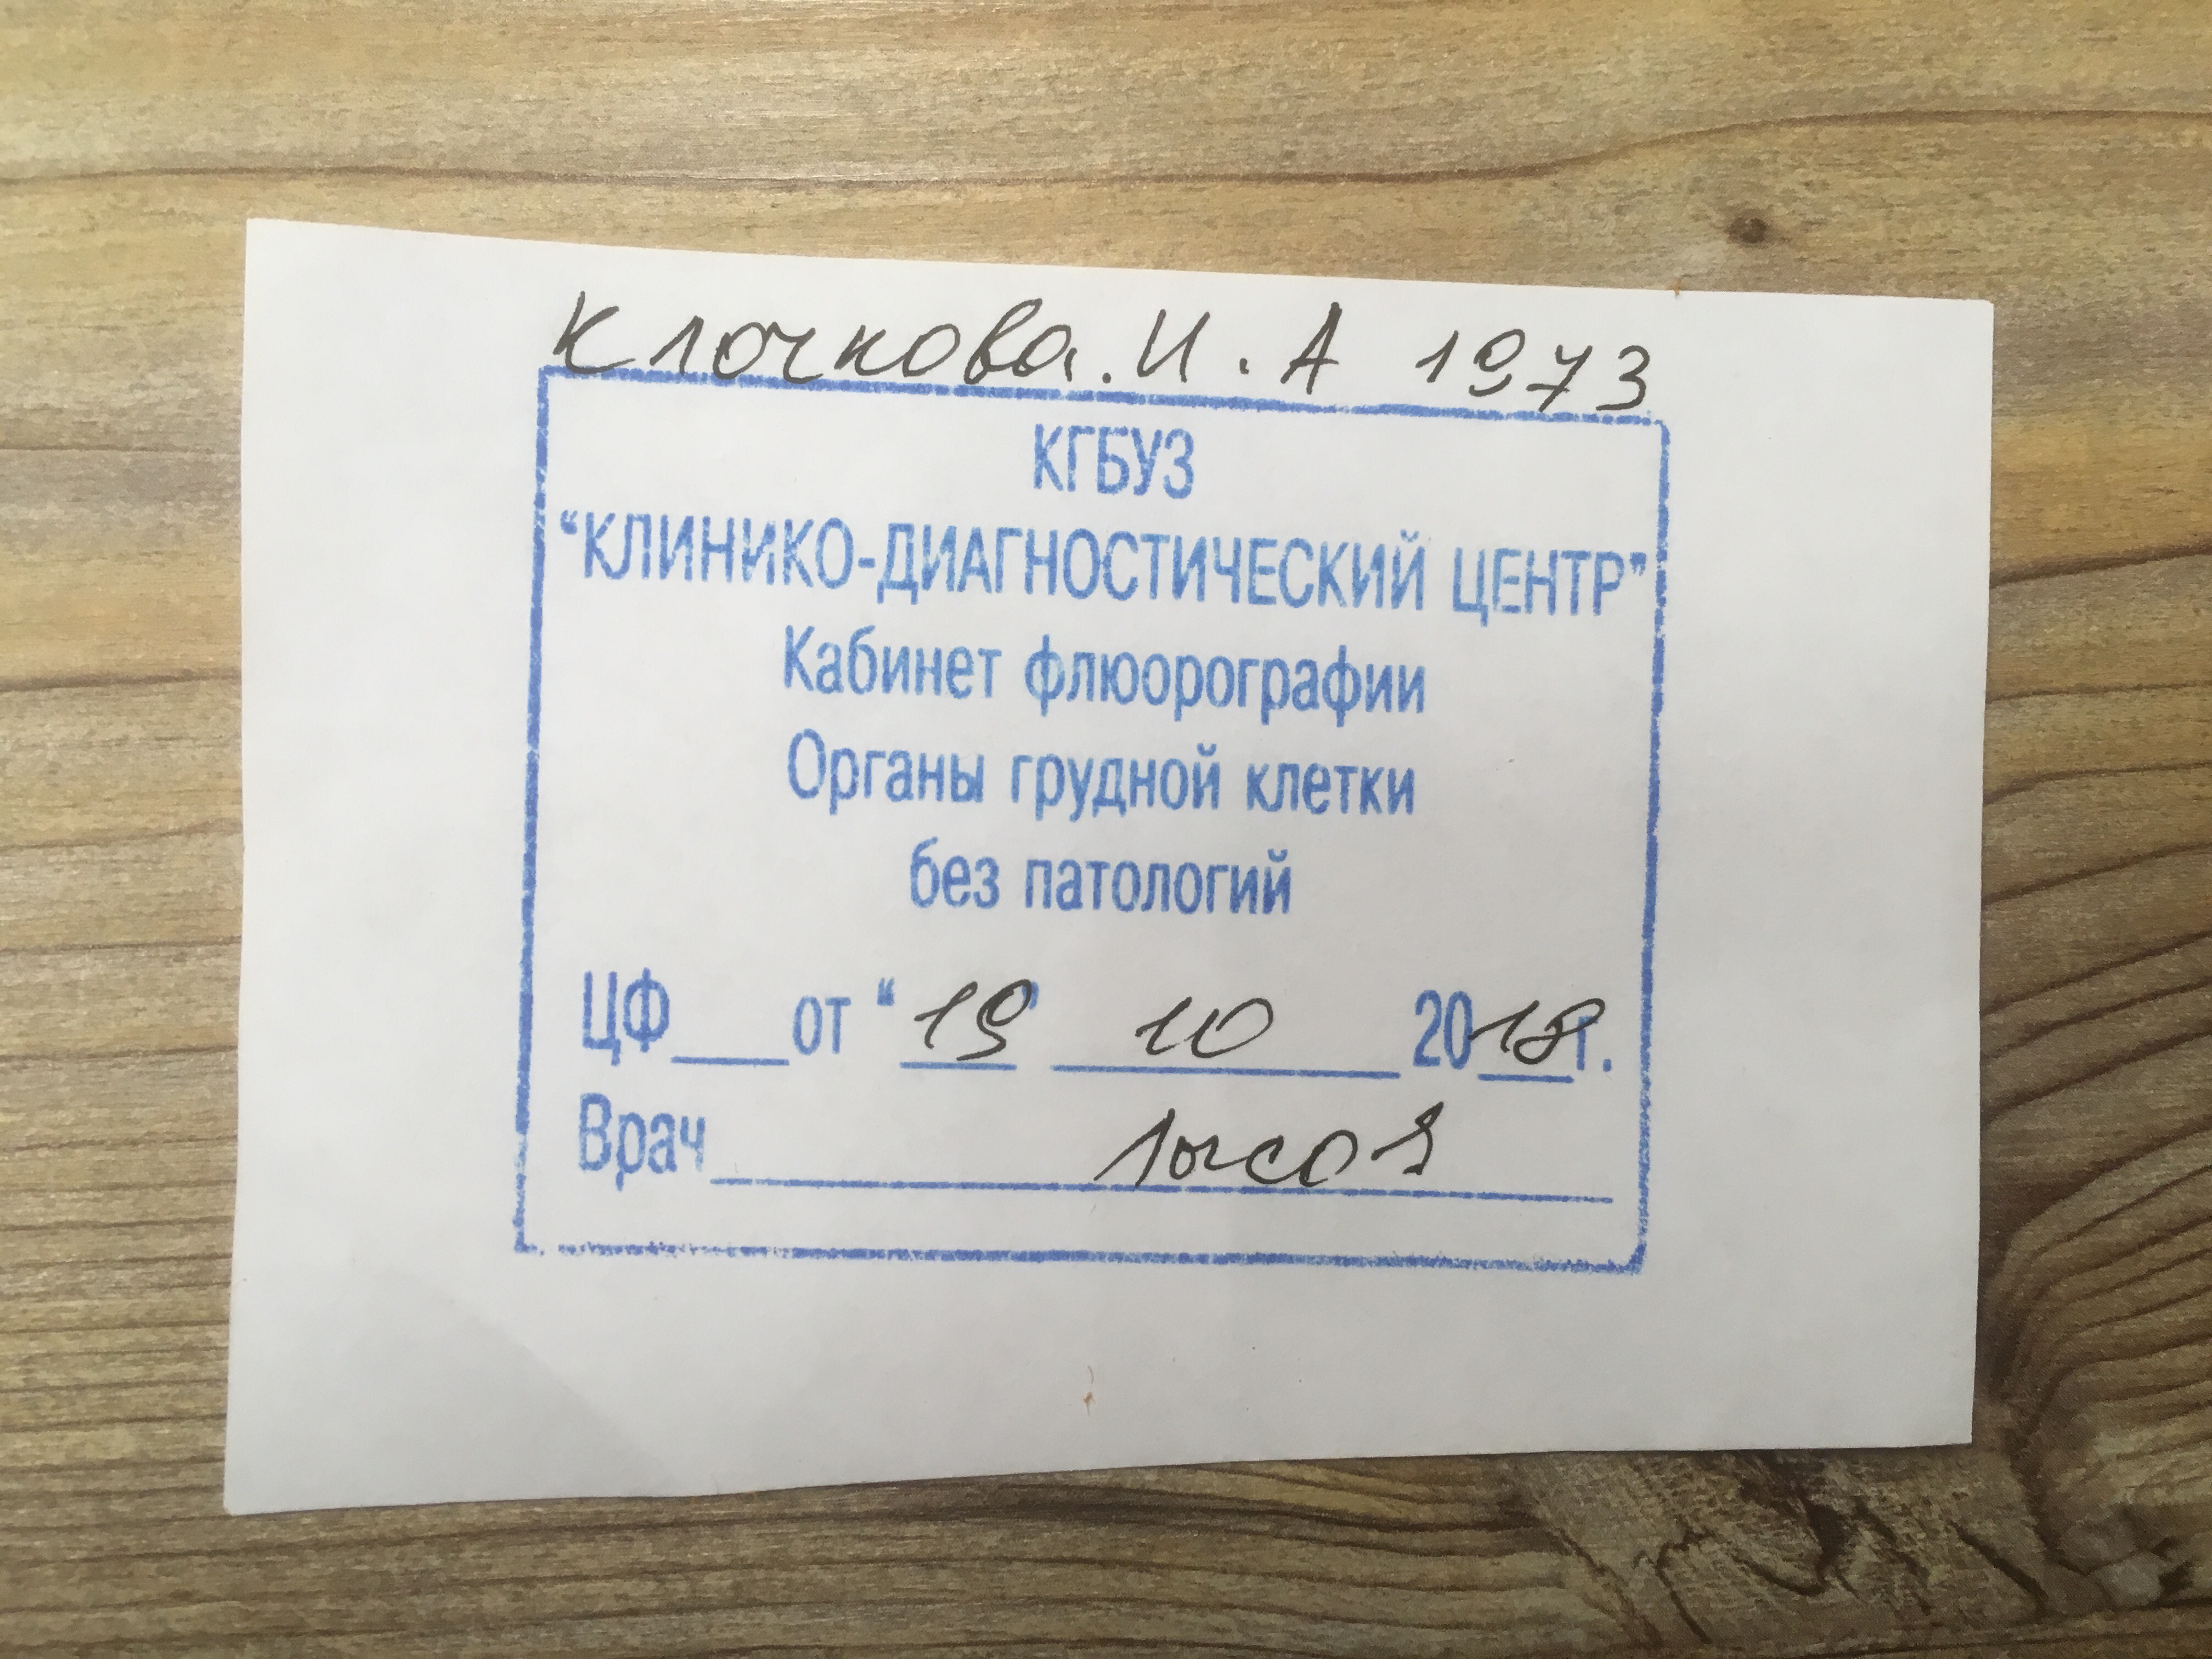 Клочкова. И. А 1973
КГБУЗ
“КЛИНИКО-ДИАГНОСТИЧЕСКИЙ ЦЕНТР”
Кабинет флюорографии
Органы грудной клетки
без патологий
ЦФ___от “19” 10 2018г.
Врач